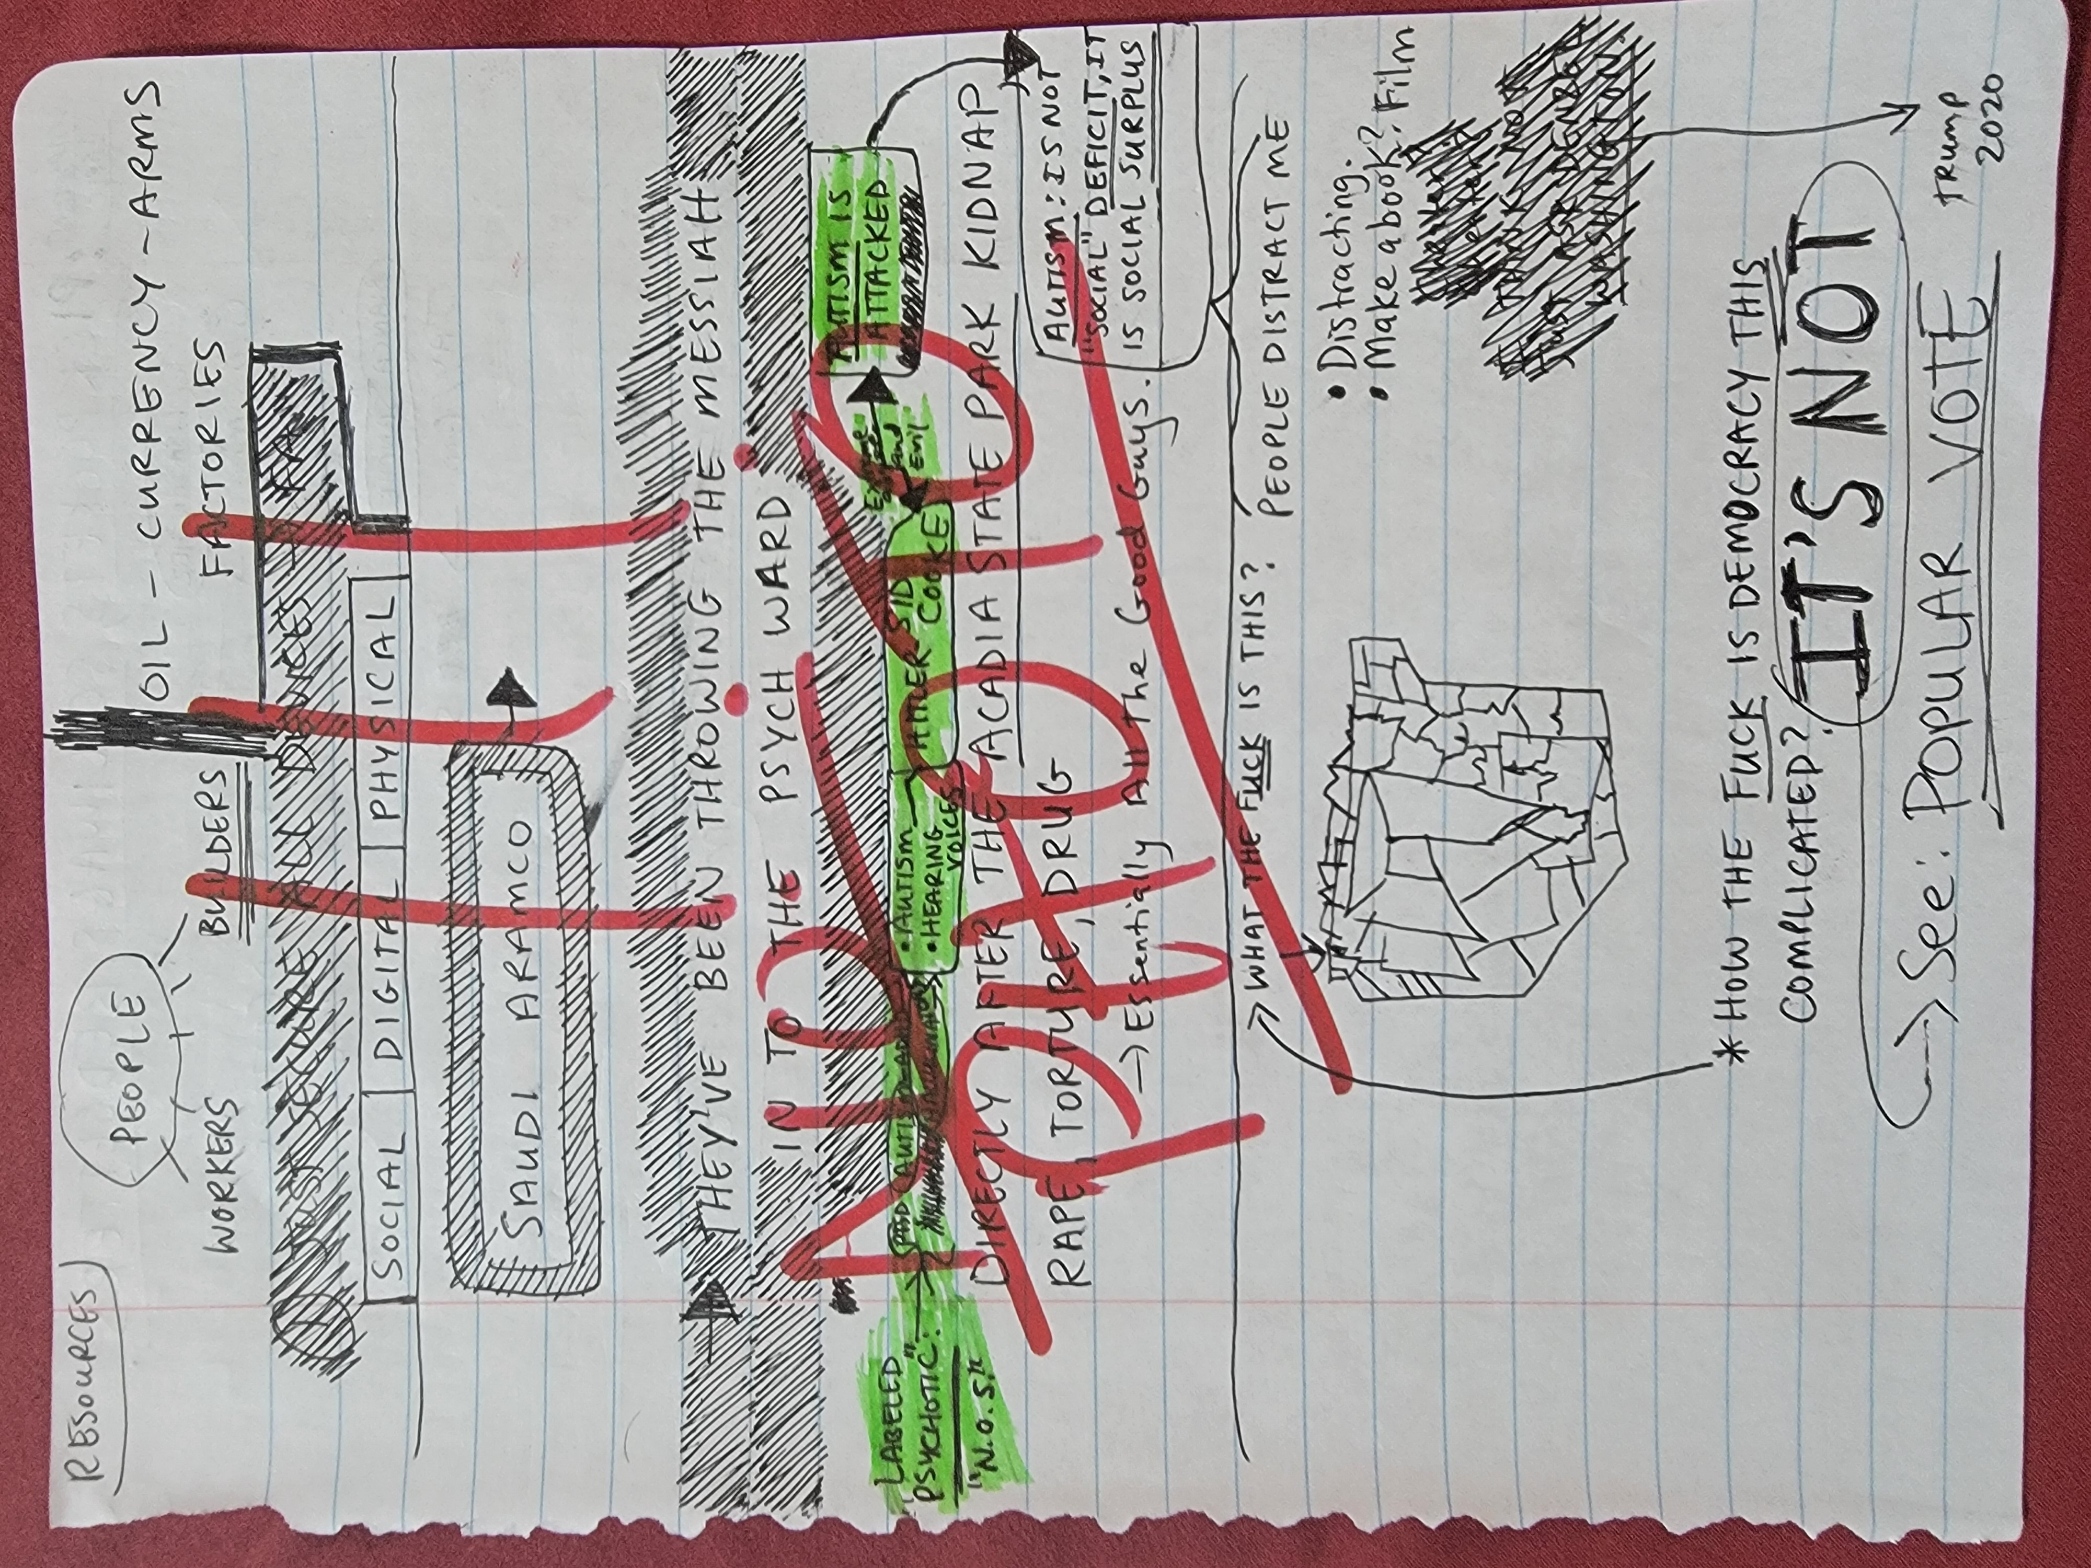 RESOURCES
PEOPLE
OIL - CURRENCY - ARMS
WORKERS BUILDERS FACTORIES
① JUST SECURE ALL DEVICES - FA
SOCIAL | DIGITAL | PHYSICAL
SAUDI ARAMCO
! ! !
THEY'VE BEEN THROWING THE MESSIAH
IN TO THE PSYCH WARD
NO
PHOTO
LABELED
PSYCHOTIC:
"N.O.S."
PTSD (AUTISM-ADHD
• AUTISM
• HEARING
VOICES
HITLER SID
COOKE
and
Evil
AUTISM IS
ATTACKED
DIRECTLY AFTER THE ACADIA STATE PARK KIDNAP,
RAPE, TORTURE, DRUG
→ Essentially All The Good Guys.
AUTISM: IS NOT
"SOCIAL" DEFICIT, IT
IS SOCIAL SURPLUS
WHAT THE FUCK IS THIS?
PEOPLE DISTRACT ME
• Distracting.
• Make a book? Film
Theater?
I THINK NOT
JUST ASK DENZEL
WASHINGTON.
* HOW THE FUCK IS DEMOCRACY THIS
COMPLICATED? IT'S NOT
See: POPULAR VOTE
TRUMP
2020